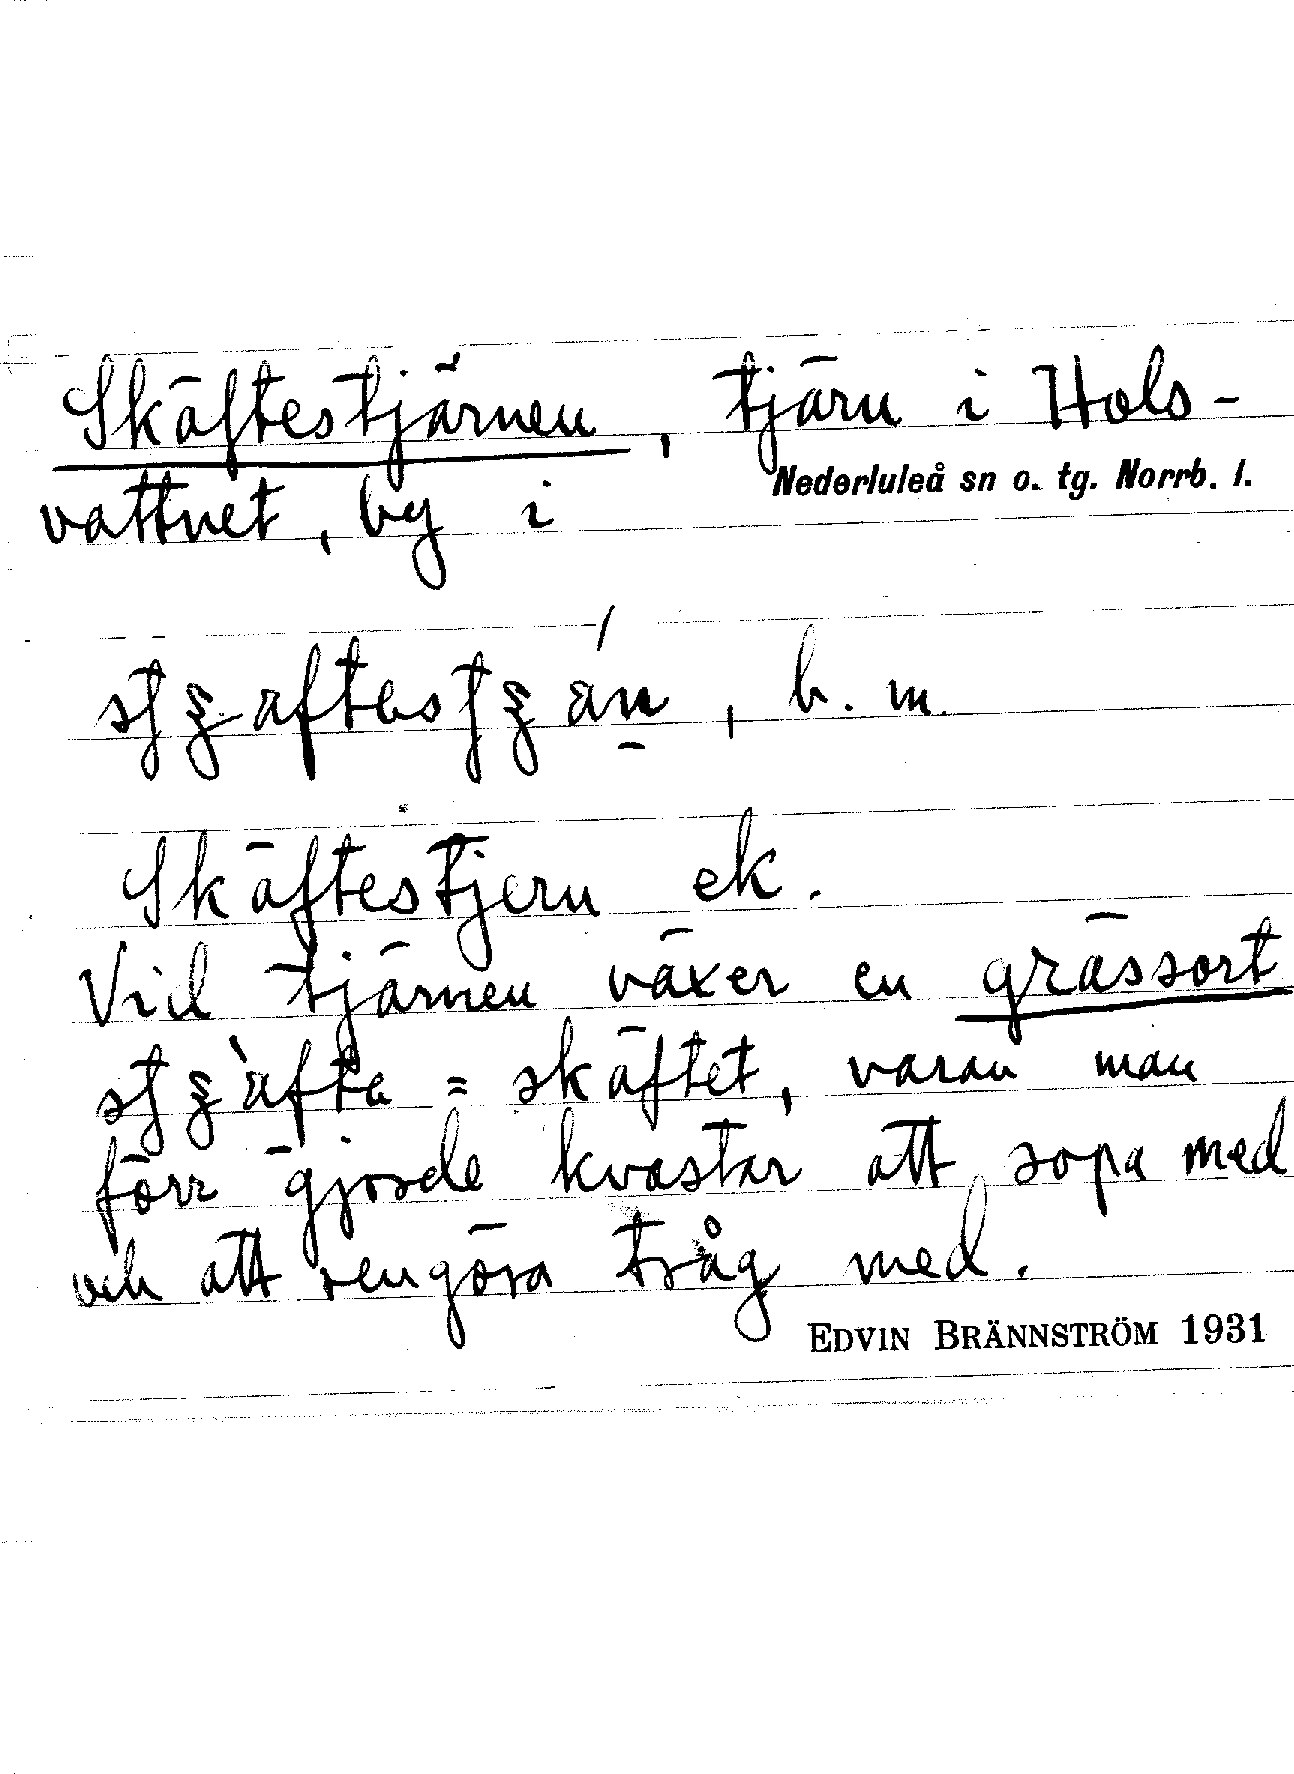 Skäftestjärnen, tjärn i Hols-
vattnet, by i Nederluleå sn o. tg. Norrb. l.
b. m.
Skäftestjern ek.
Vid tjärnen växer en grässort
= skäftet, varav man
förr gjorde kvastar att sopa med
och att rengöra tråg med.
EDVIN BRÄNNSTRÖM 1931